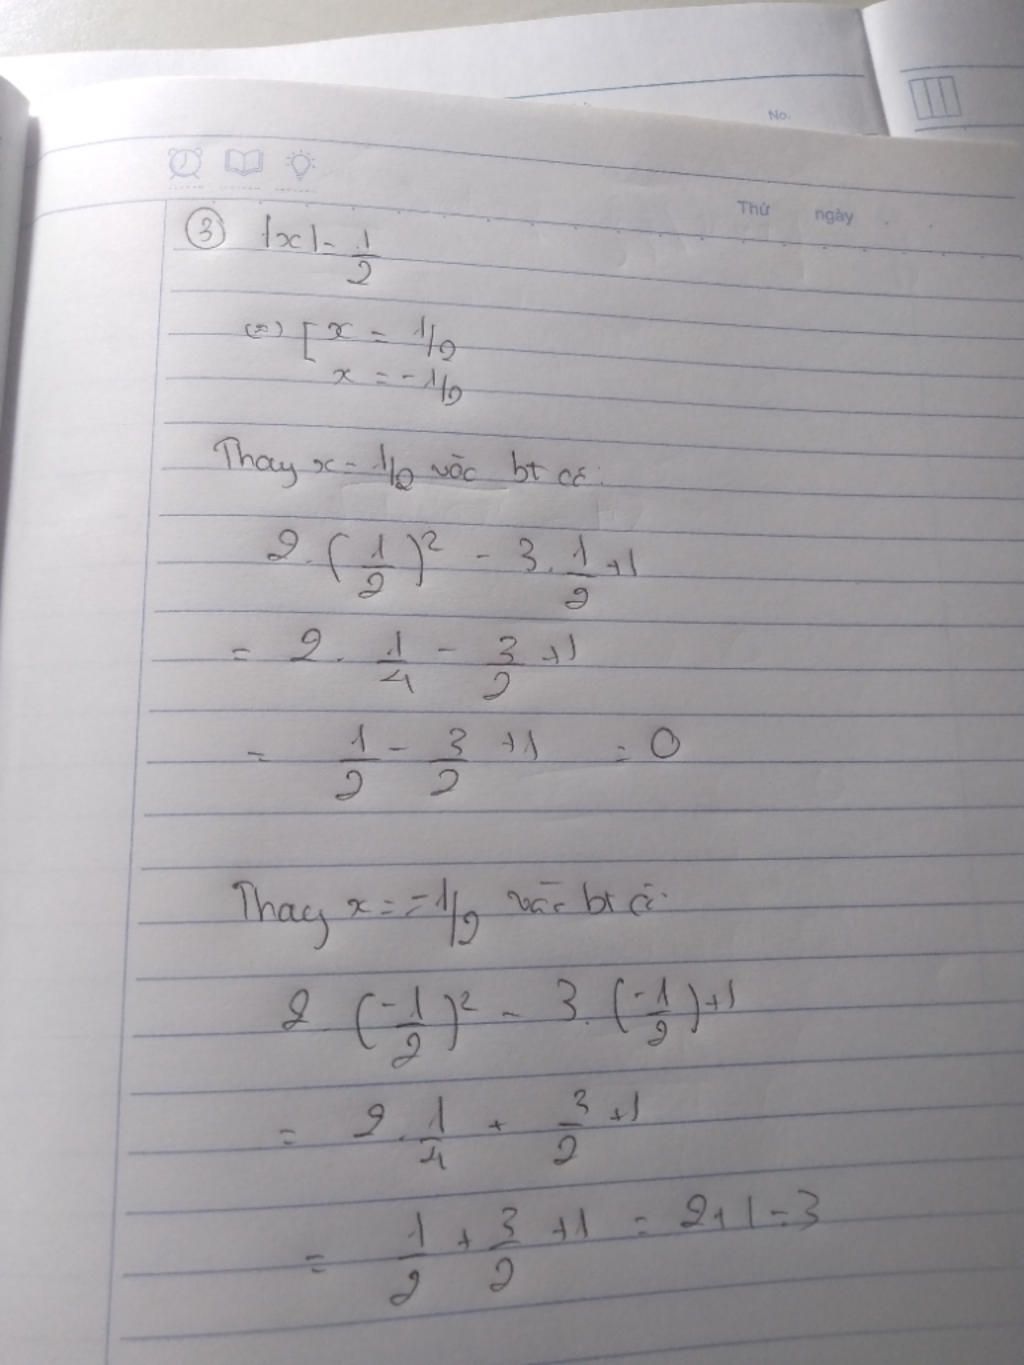 No.
Thứ ngày
③ |x| = 1/2
(=) [ x = 1/2
x = -1/2
Thay x = 1/2 vào bt có:
2.(1/2)² - 3.1/2 +1
= 2. 1/4 - 3/2 +1
= 1/2 - 3/2 +1 = 0
Thay x = -1/2 vào bt có:
2 (-1/2)² - 3.(-1/2)+1
= 2.1/4 + 3/2 +1
= 1/2 + 3/2 +1 = 2+1=3